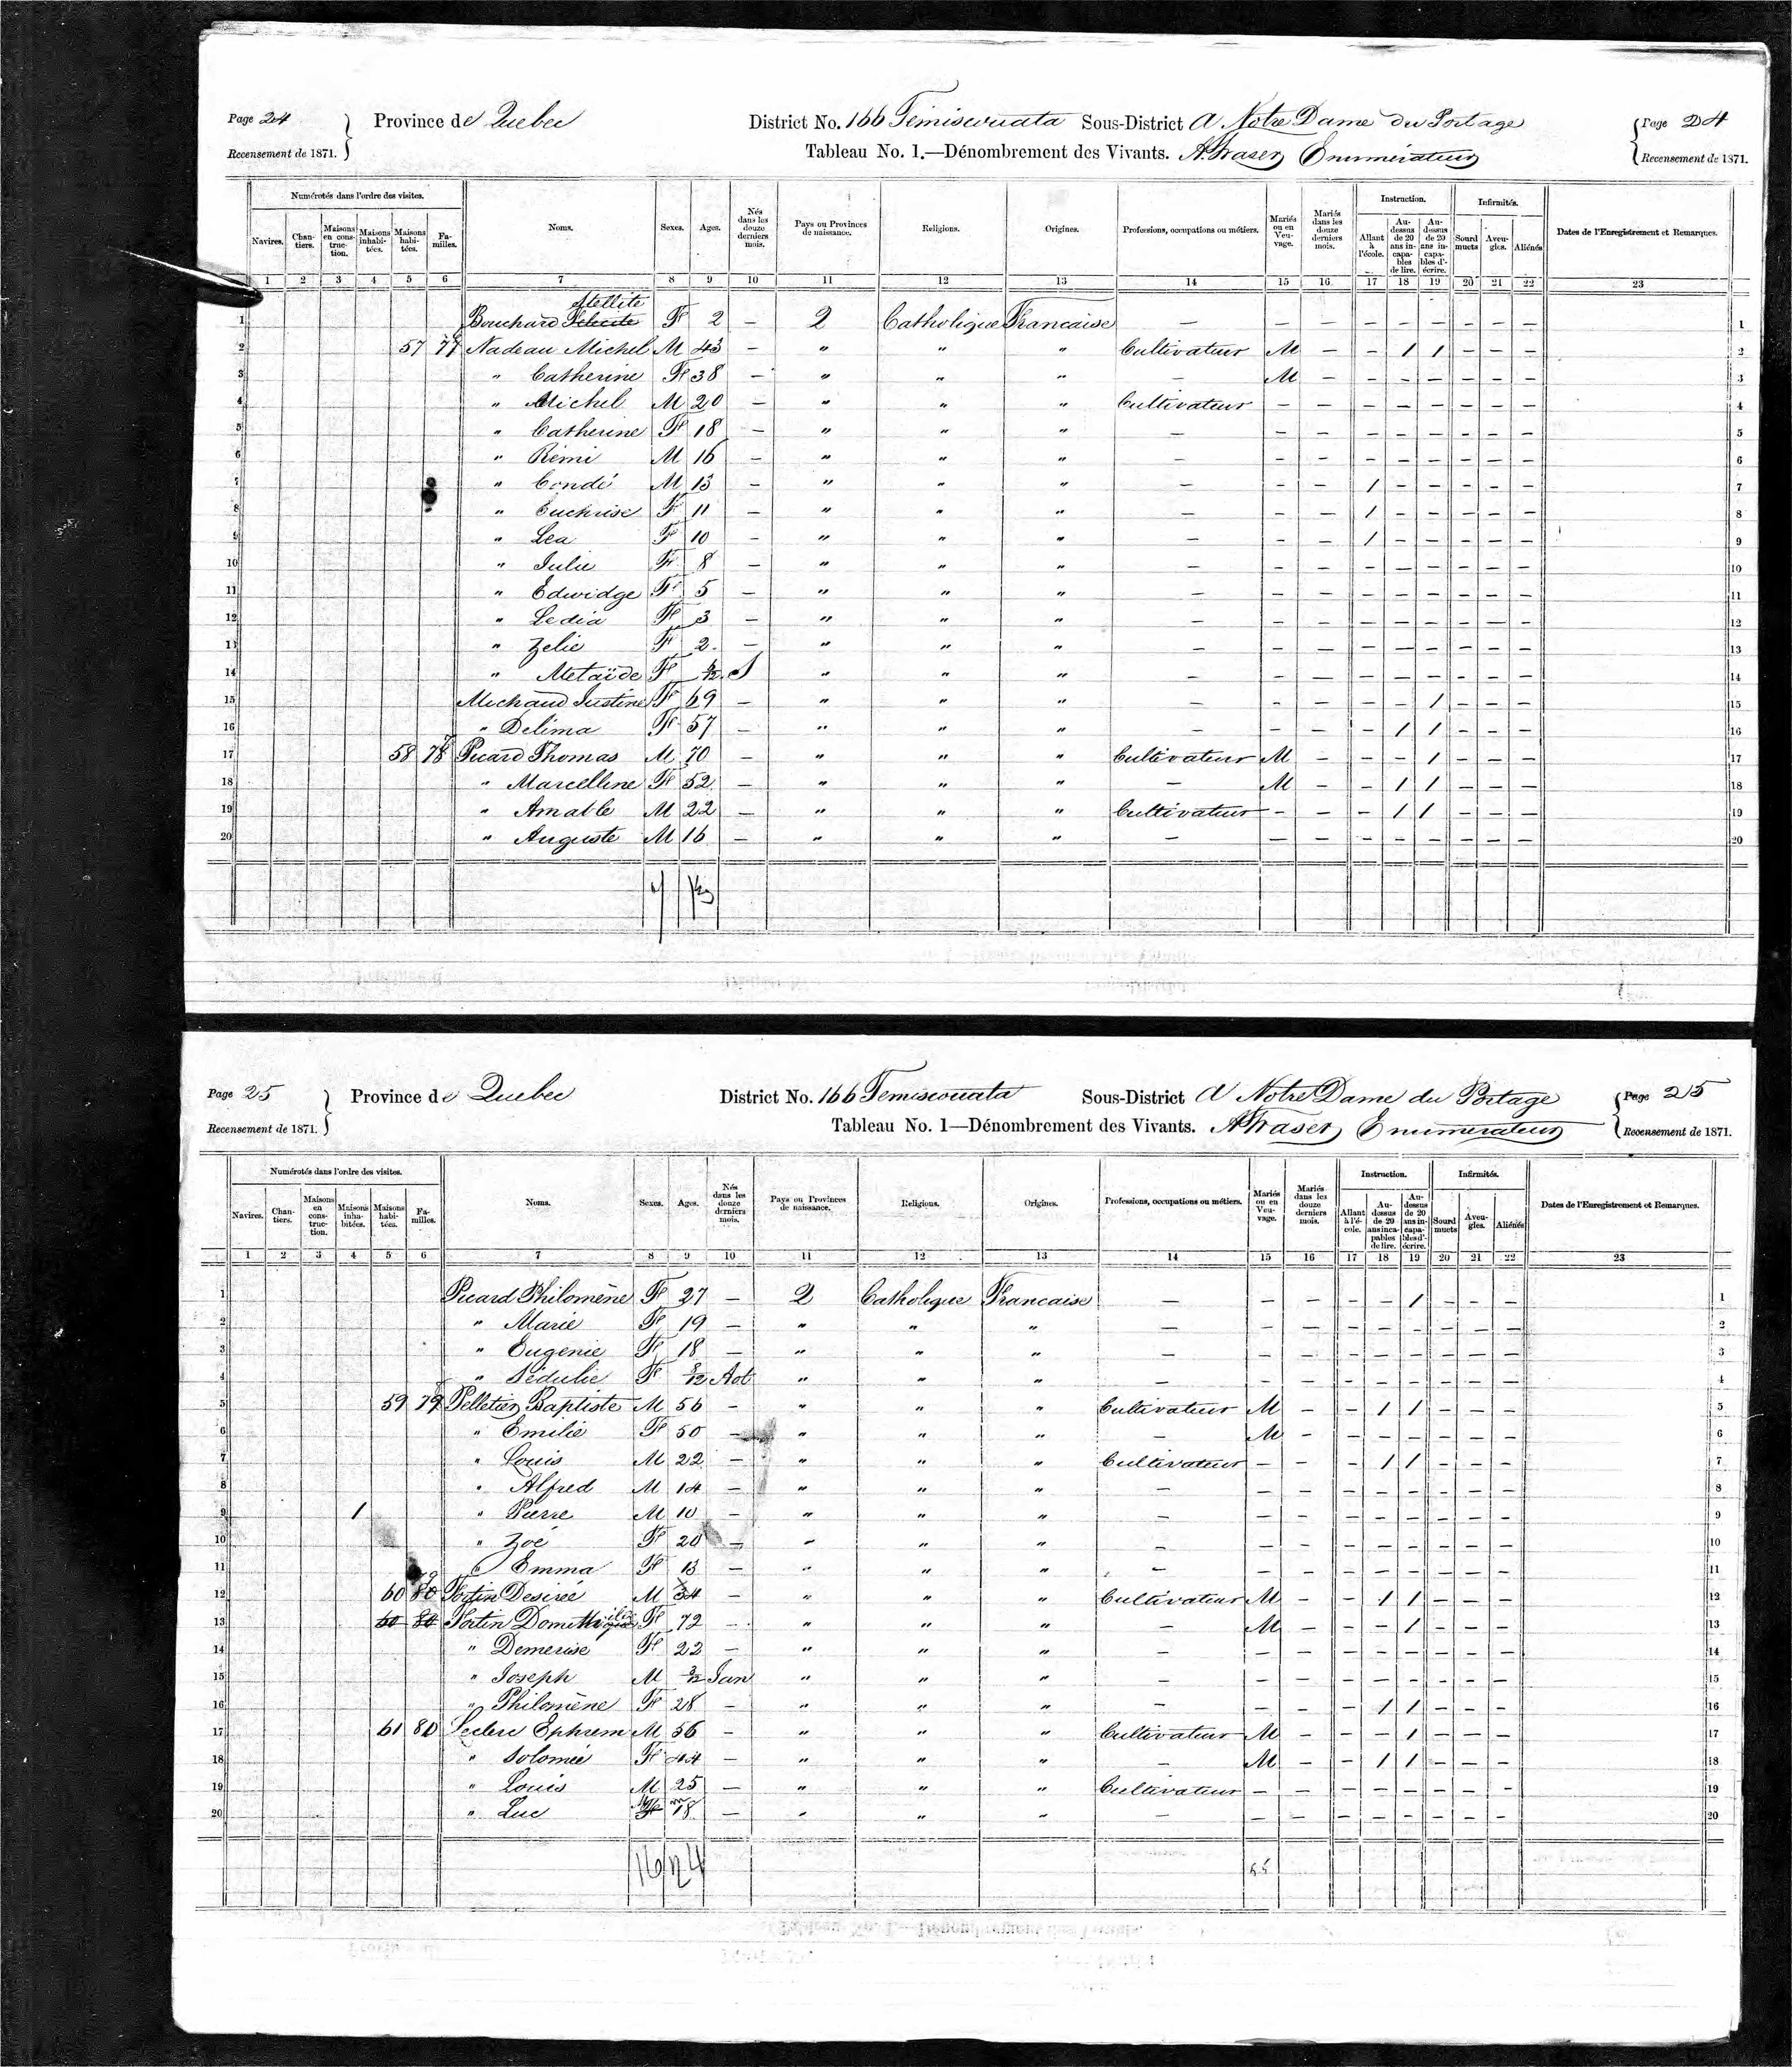 Page 24 Province de Quebec District No. 166 Témiscouata Sous-District A Notre Dame du Portage Page 24
Recensement de 1871. Tableau No. 1.—Dénombrement des Vivants. A. Fraser Enumérateur Recensement de 1871.
Numérotés dans l'ordre des visites. Instruction. Infirmités.
Navires. Chantiers. Maisons en construction. Maisons inhabitées. Maisons habitées. Familles. Noms. Sexes. Ages. Nés dans les douze derniers mois. Pays ou Provinces de naissance. Religions. Origines. Professions, occupations ou métiers. Mariés ou en Veuvage. Mariés dans les douze derniers mois. Allant à l'école. Au-dessus de 20 ans incapables de lire. Au-dessus de 20 ans incapables d'écrire. Sourd muets Aveugles. Aliénés Dates de l'Enregistrement et Remarques.
1 2 3 4 5 6 7 8 9 10 11 12 13 14 15 16 17 18 19 20 21 22 23
Stellite
1 Bouchard Felicite F 2 — 2 Catholique Francaise — — — — — — — — — 1
2 57 77 Nadeau Michel M 43 — " " " Cultivateur M — — 1 1 — — — 2
3 " Catherine F 38 — " " " — M — — — — — — — 3
4 " Michel M 20 — " " " Cultivateur — — — — — — — — 4
5 " Catherine F 18 — " " " — — — — — — — — — 5
6 " Remi M 16 — " " " — — — — — — — — — 6
7 " Condé M 13 — " " " — — — 1 — — — — — 7
8 " Euchrise F 11 — " " " — — — 1 — — — — — 8
9 " Lea F 10 — " " " — — — 1 — — — — — 9
10 " Julie F 8 — " " " — — — — — — — — — 10
11 " Edwidge F 5 — " " " — — — — — — — — — 11
12 " Ledia F 3 — " " " — — — — — — — — — 12
13 " Zelie F 2 — " " " — — — — — — — — — 13
14 " Metaïde F " " " — — — — — — — — — 14
15 Michaud Justine F 69 — " " " — — — — — 1 — — — 15
16 " Delima F 57 — " " " — — — — 1 1 — — — 16
17 58 78 Picard Thomas M 70 — " " " Cultivateur M — — — 1 — — — 17
18 " Marcelline F 52 — " " " — M — — 1 1 — — — 18
19 " Amable M 22 — " " " Cultivateur — — — 1 1 — — — 19
20 " Auguste M 16 — " " " — — — — — — — — — 20
Page 25 Province de Quebec District No. 166 Temiscouata Sous-District A Notre Dame du Portage Page 25
Recensement de 1871. Tableau No. 1—Dénombrement des Vivants. A Fraser Enumerateur Recensement de 1871.
Numérotés dans l'ordre des visites. Instruction. Infirmités.
Navires. Chantiers. Maisons en construction. Maisons inhabitées. Maisons habitées. Familles. Noms. Sexes. Ages. Nés dans les douze derniers mois. Pays ou Provinces de naissance. Religions. Origines. Professions, occupations ou métiers. Mariés ou en Veuvage. Mariés dans les douze derniers mois. Allant à l'école. Au-dessus de 20 ans incapables de lire. Au-dessus de 20 ans incapables d'écrire. Sourd muets Aveugles. Aliénés Dates de l'Enregistrement et Remarques.
1 2 3 4 5 6 7 8 9 10 11 12 13 14 15 16 17 18 19 20 21 22 23
1 Picard Philomène F 27 — 2 Catholique Francaise — — — — — 1 — — — 1
2 " Marie F 19 — " " " — — — — — — — — — 2
3 " Eugenie F 18 — " " " — — — — — — — — — 3
4 " Sédulie F 8/12 Aot " " " — — — — — — — — — 4
5 59 79 Pelletier Baptiste M 56 — " " " Cultivateur M — — 1 1 — — — 5
6 " Emilie F 50 — " " " — M — — — — — — — 6
7 " Louis M 22 — " " " Cultivateur — — — 1 1 — — — 7
8 " Alfred M 14 — " " " — — — — — — — — — 8
9 1 " Pierre M 10 — " " " — — — — — — — — — 9
10 " Zoé F 20 — " " " — — — — — — — — — 10
11 " Emma F 13 — " " " — — — — — — — — — 11
12 60 80 Fortin Desireé M 34 — " " " Cultivateur M — — 1 1 — — — 12
13 60 80 Fortin F 72 — " " " — M — — — 1 — — — 13
14 " Demerise F 22 — " " " — — — — — — — — — 14
15 " Joseph M 3/12 Jan " " " — — — — — — — — — 15
16 " Philomène F 28 — " " " — — — — 1 1 — — — 16
17 61 80 Leclerc Ephrem M 56 — " " " Cultivateur M — — — 1 — — — 17
18 " Solomée F 44 — " " " — M — — 1 1 — — — 18
19 " Louis M 25 — " " " Cultivateur — — — — — — — — 19
20 " Luc 18 — " " " — — — — — — — — — 20